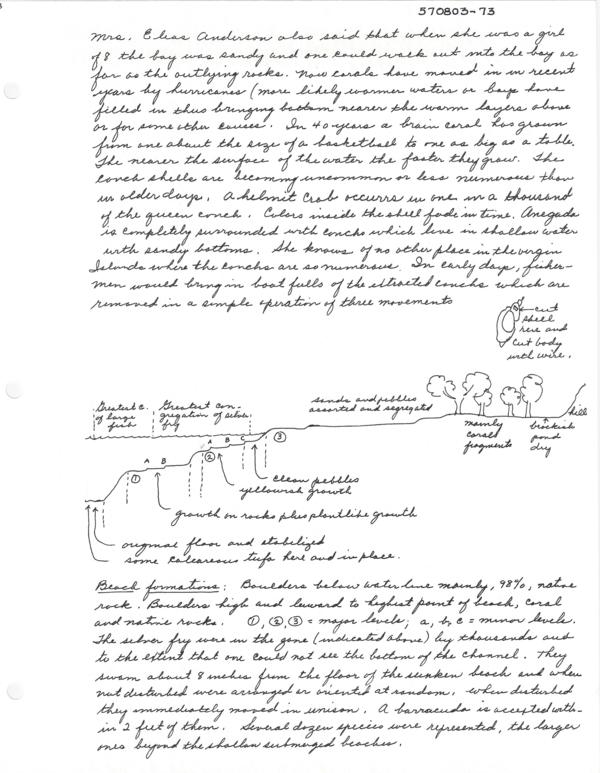 570803-73
Mrs. Elias Anderson also said that when she was a girl
of 8 the bay was sandy and one could walk out into the bay as
far as the outlying rocks. Now corals have moved in in recent
years by hurricanes (more likely warmer waters or bays have
filled in thus bringing bottom nearer the warm layers above
or for some other causes. In 40 years a brain coral has grown
from one about the size of a basketball to one as big as a table.
The nearer the surface of the water the faster they grow. The
conch shells are becoming uncommon or less numerous than
in older days. A helmit Crab occurrs in one in a thousand
of the queen conch. Colors inside the shell fade in time. Anegada
is completely surrounded with conchs which live in shallow water
with sandy bottoms. She knows of no other place in the virgin
Islands where the conchs are so numerous. In early days, fisher-
men would bring in boat fulls of the extracted conchs which are
removed in a simple operation of three movements
cut
shell
here and
cut body
with wire.
Greatest c.
of large
fish
Greatest con-
gregation of silver
fry
sands and pebbles
assorted and segregated
mainly
corals
fragments
brackish
pond
dry
hill
A B
①
A B C
②
③
clean pebbles
yellowish growth
growth on rocks plus plantlike growth
original floor and stabilized
some calcareous tufa here and in place.
Beach formations: Boulders below water line mainly, 98%, native
rock. Boulders high and leeward to highest point of beach, coral
and native rocks. ①, ②, ③ = major levels; a, b, c = minor levels.
The silver fry were in the zone (indicated above) by thousands and
to the extent that one could not see the bottom of the channel. They
swam about 8 inches from the floor of the sunken beach and when
not disturbed were arranged or oriented at random. When disturbed
they immediately moved in unison. A barracuda is accepted with-
in 2 feet of them. Several dozen species were represented, the larger
ones beyond the shallow submerged beaches.